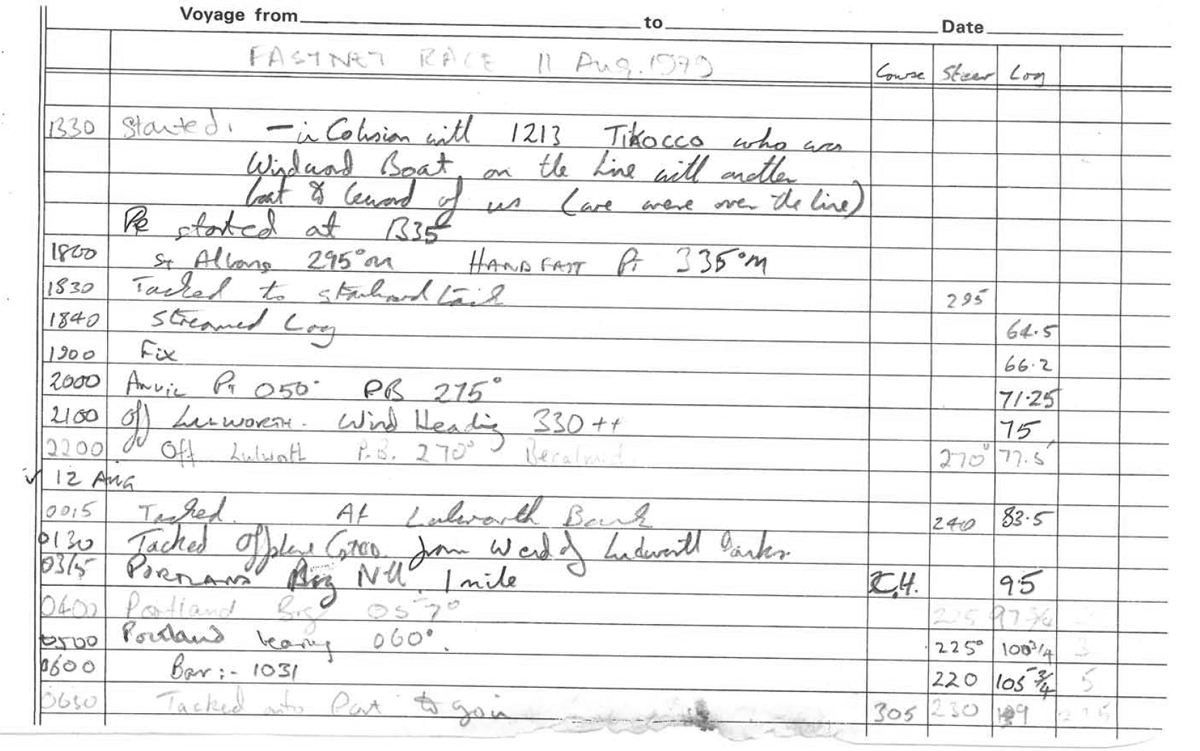 Voyage from to Date
FASTNET RACE 11 Aug. 1979 Course Steer Log
1330 Started. – in Collision with 1213 TIKOCCO who was
Windward Boat on the line with another
boat to leeward of us (we were over the line)
Re started at 1335
1800 St Albans 295°m HANDFAST Pt 335°M
1830 Tacked to starboard tack 295
1840 Streamed Log 64.5
1900 Fix 66.2
2000 Anvil Pt 050° PB 275° 71.25
2100 Off LULWORTH. Wind Heading 330++ 75
2200 Off Lulworth P.B. 270° Becalmed 270° 77.5
✓ 12 AUG
0015 Tacked. At Lulworth Bank 240 83.5
0130 Tacked from of
0315 PORTLAND Brg 1 mile 95
0400 Portland Brg 057° 225 97 3/4
0500 Portland bearing 060°. 225° 100 3/4 3
0600 Bar:- 1031 220 105 3/4 5
0650 Tacked onto Port to 305 230